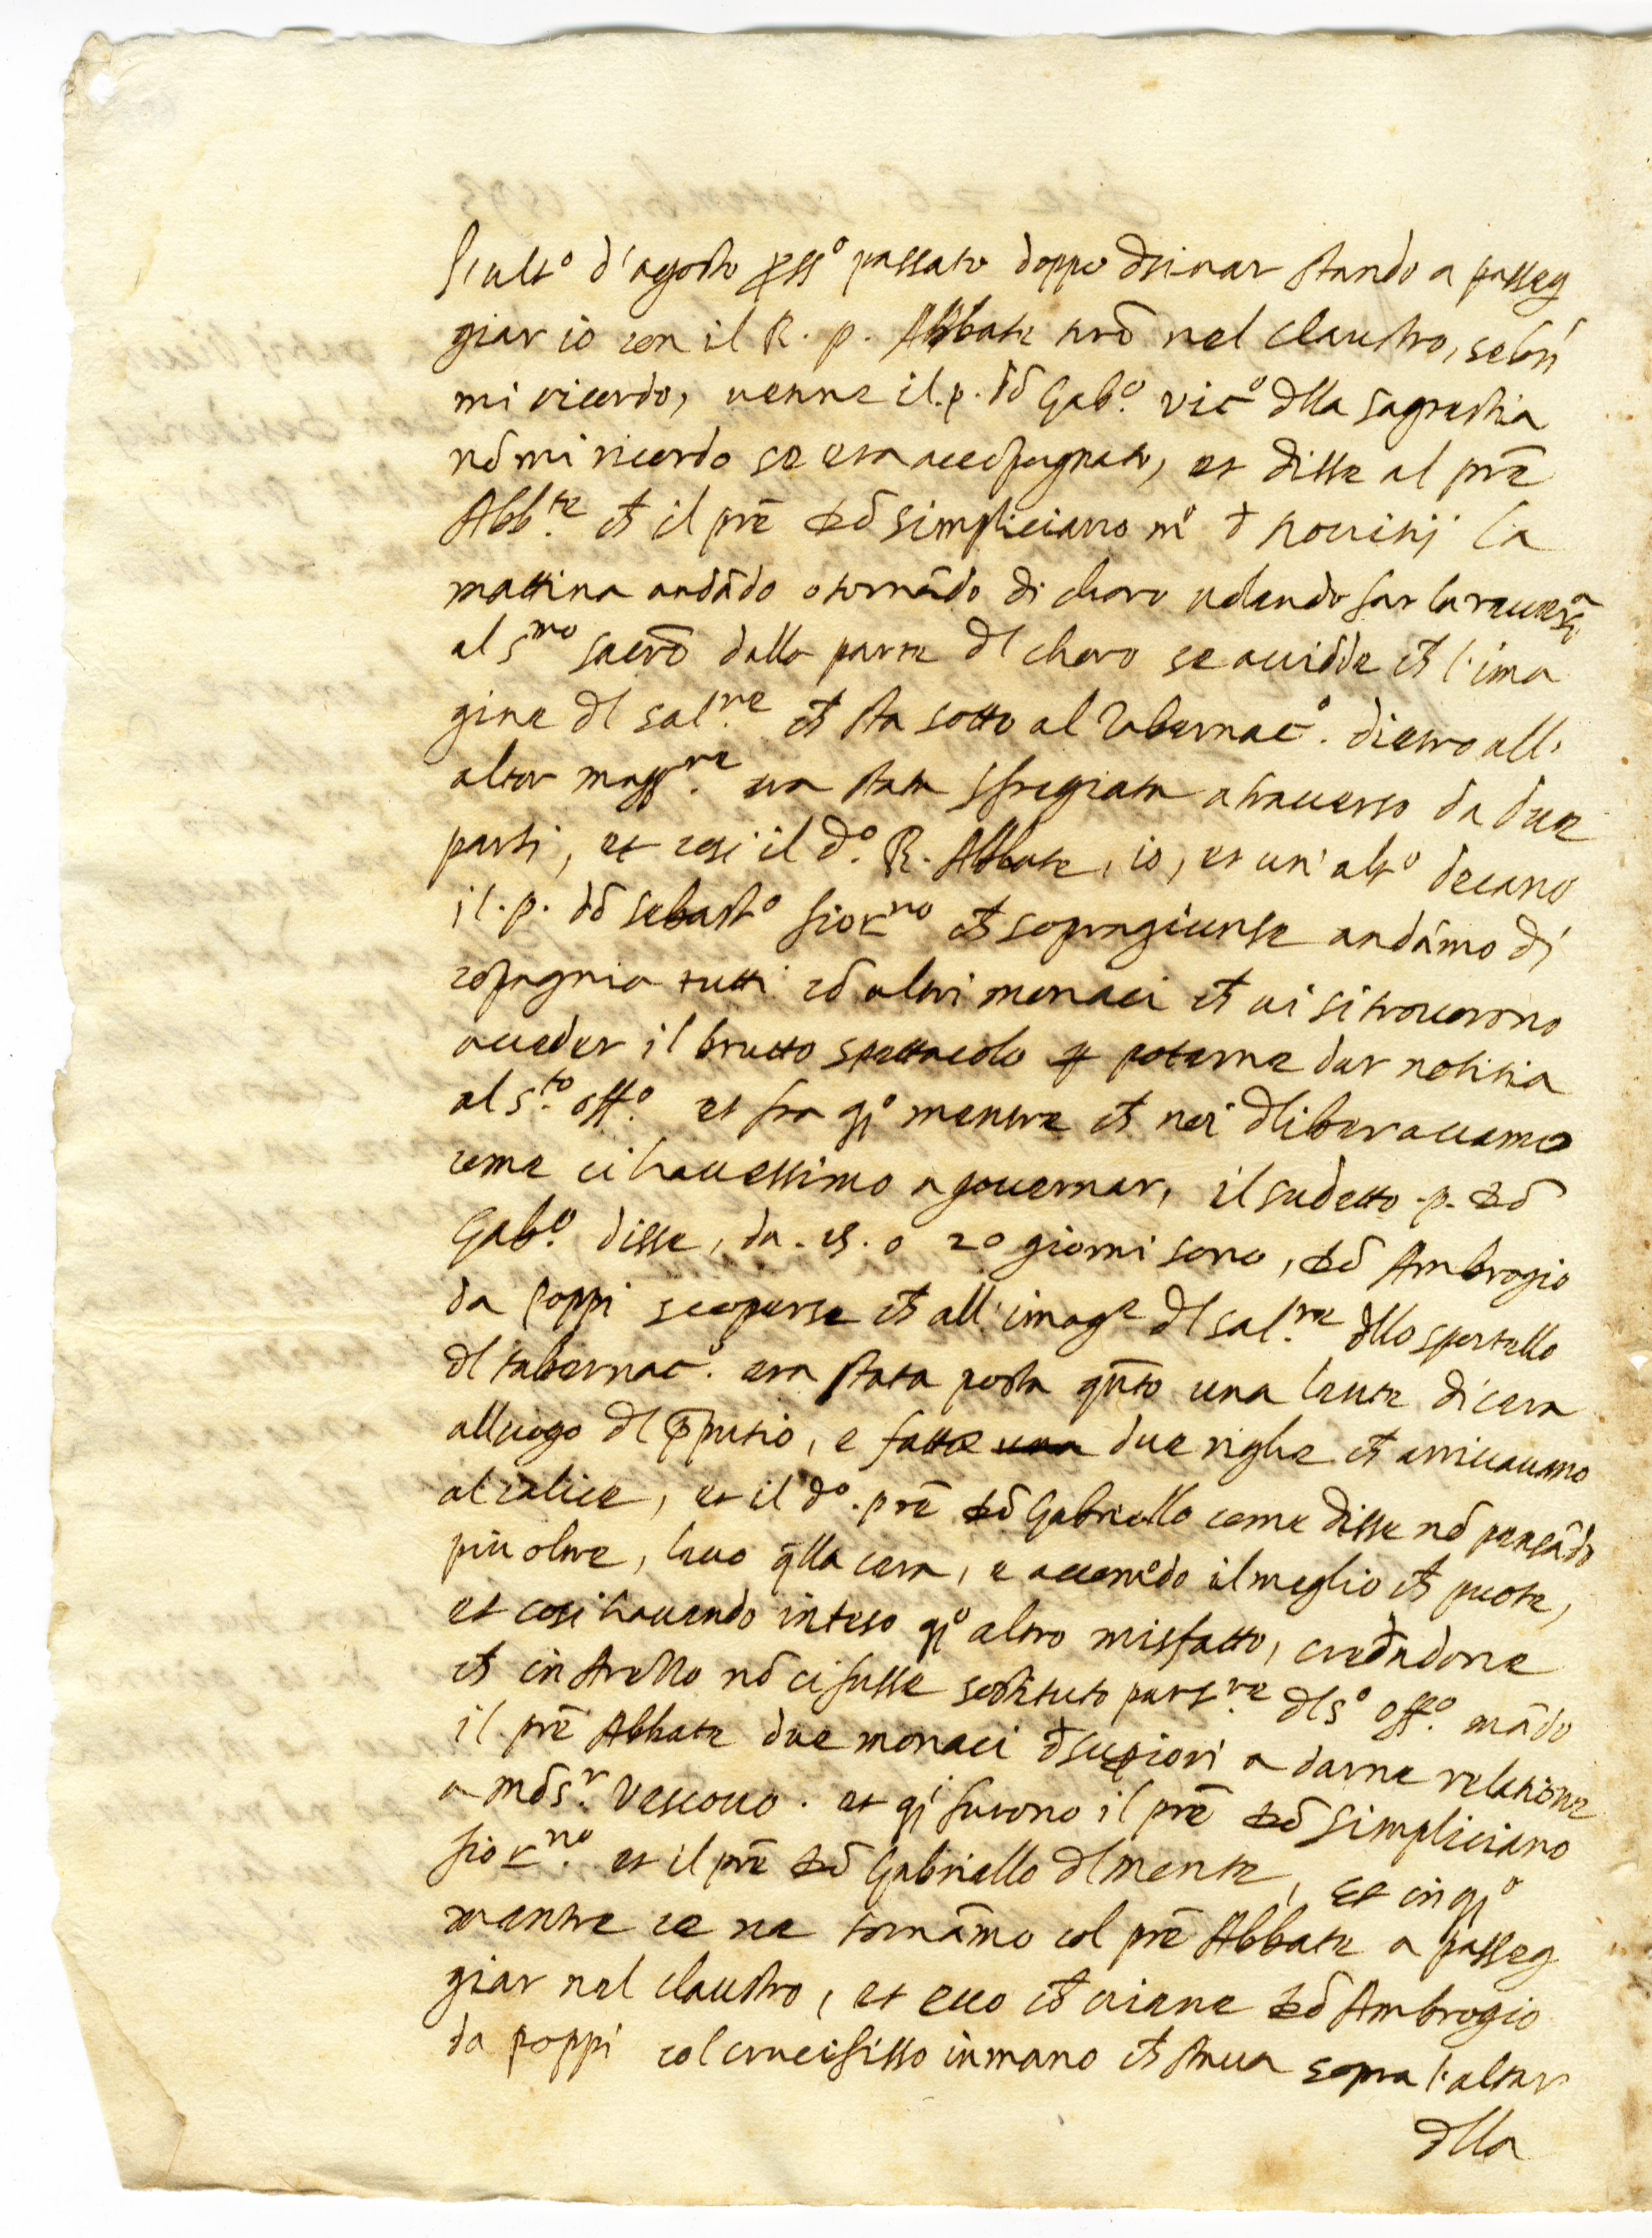 l'ult.o d'agosto pross.o passato doppo disinar stando a passeg
giar io con il R. p. Abbate nrõ nel claustro, se bñ
mi ricordo, venne il .p. dõ Gab.o vic.o dlla sagrestia
nõ mi ricordo se era accõpagnato, et disse al prẽ
Abb.te ch̃ il prẽ dõ Simpliciano m.o d novitij la
mattina andãdo o tornãdo di choro volendo far la reverẽa
al S.mo sacrõ dalla parte dl choro se avidde ch̃ l'ima
gine dl Sal.re ch̃ sta sotto al Tabernac.o dietro all'
altar magg.re era stata sfregiata atraverso da due
parti, et cosi il d.o R. Abbate, io, et un'alt.o decano
il .p. dõ Sebast.o fior.no ch̃ sopragiunse andãmo di
cõpagnia tutti cõ altri monaci ch̃ vi si trovorono
a veder il brutto spettacolo p poterne dar notitia
al S.to off.o et fra q.o mentre ch̃ noi dliberavamo
come ci havessimo a governar, il sudetto .p. dõ
Gab.o disse, da .15. o 20 giorni sono, dõ Ambrogio
da Poppi scoperse ch̃ all'imag.e dl Sal.re dllo sportello
dl tabernac.o era stata posta qñto una lente di cera
al luogo dl p̃putio, e fatte una due righe ch̃ arrivavano
al calice, et il d.o prẽ dõ Gabriello come disse nõ pensãdo
piu oltre, levo q̃lla cera, e accomõdo il meglio ch̃ puote,
et cosi havendo inteso q.o altro misfatto, credẽdone
ch̃ in Strello nõ ci fusse sostituto part.re dl S.o off.o mãdo
il prẽ Abbate due monaci d supiori a darne relatione
a mõs.r Vescovo. et q.i furono il prẽ dõ Simpliciano
fior.no et il prẽ dõ Gabriello dl Monte, et in q.o
mentre ce ne tornãmo col prẽ Abbate a passeg
giar nel claustro, et ecco ch̃ viene dõ Ambrogio
da Poppi col crucifisso in mano ch̃ stava sopra l'altar
dlla